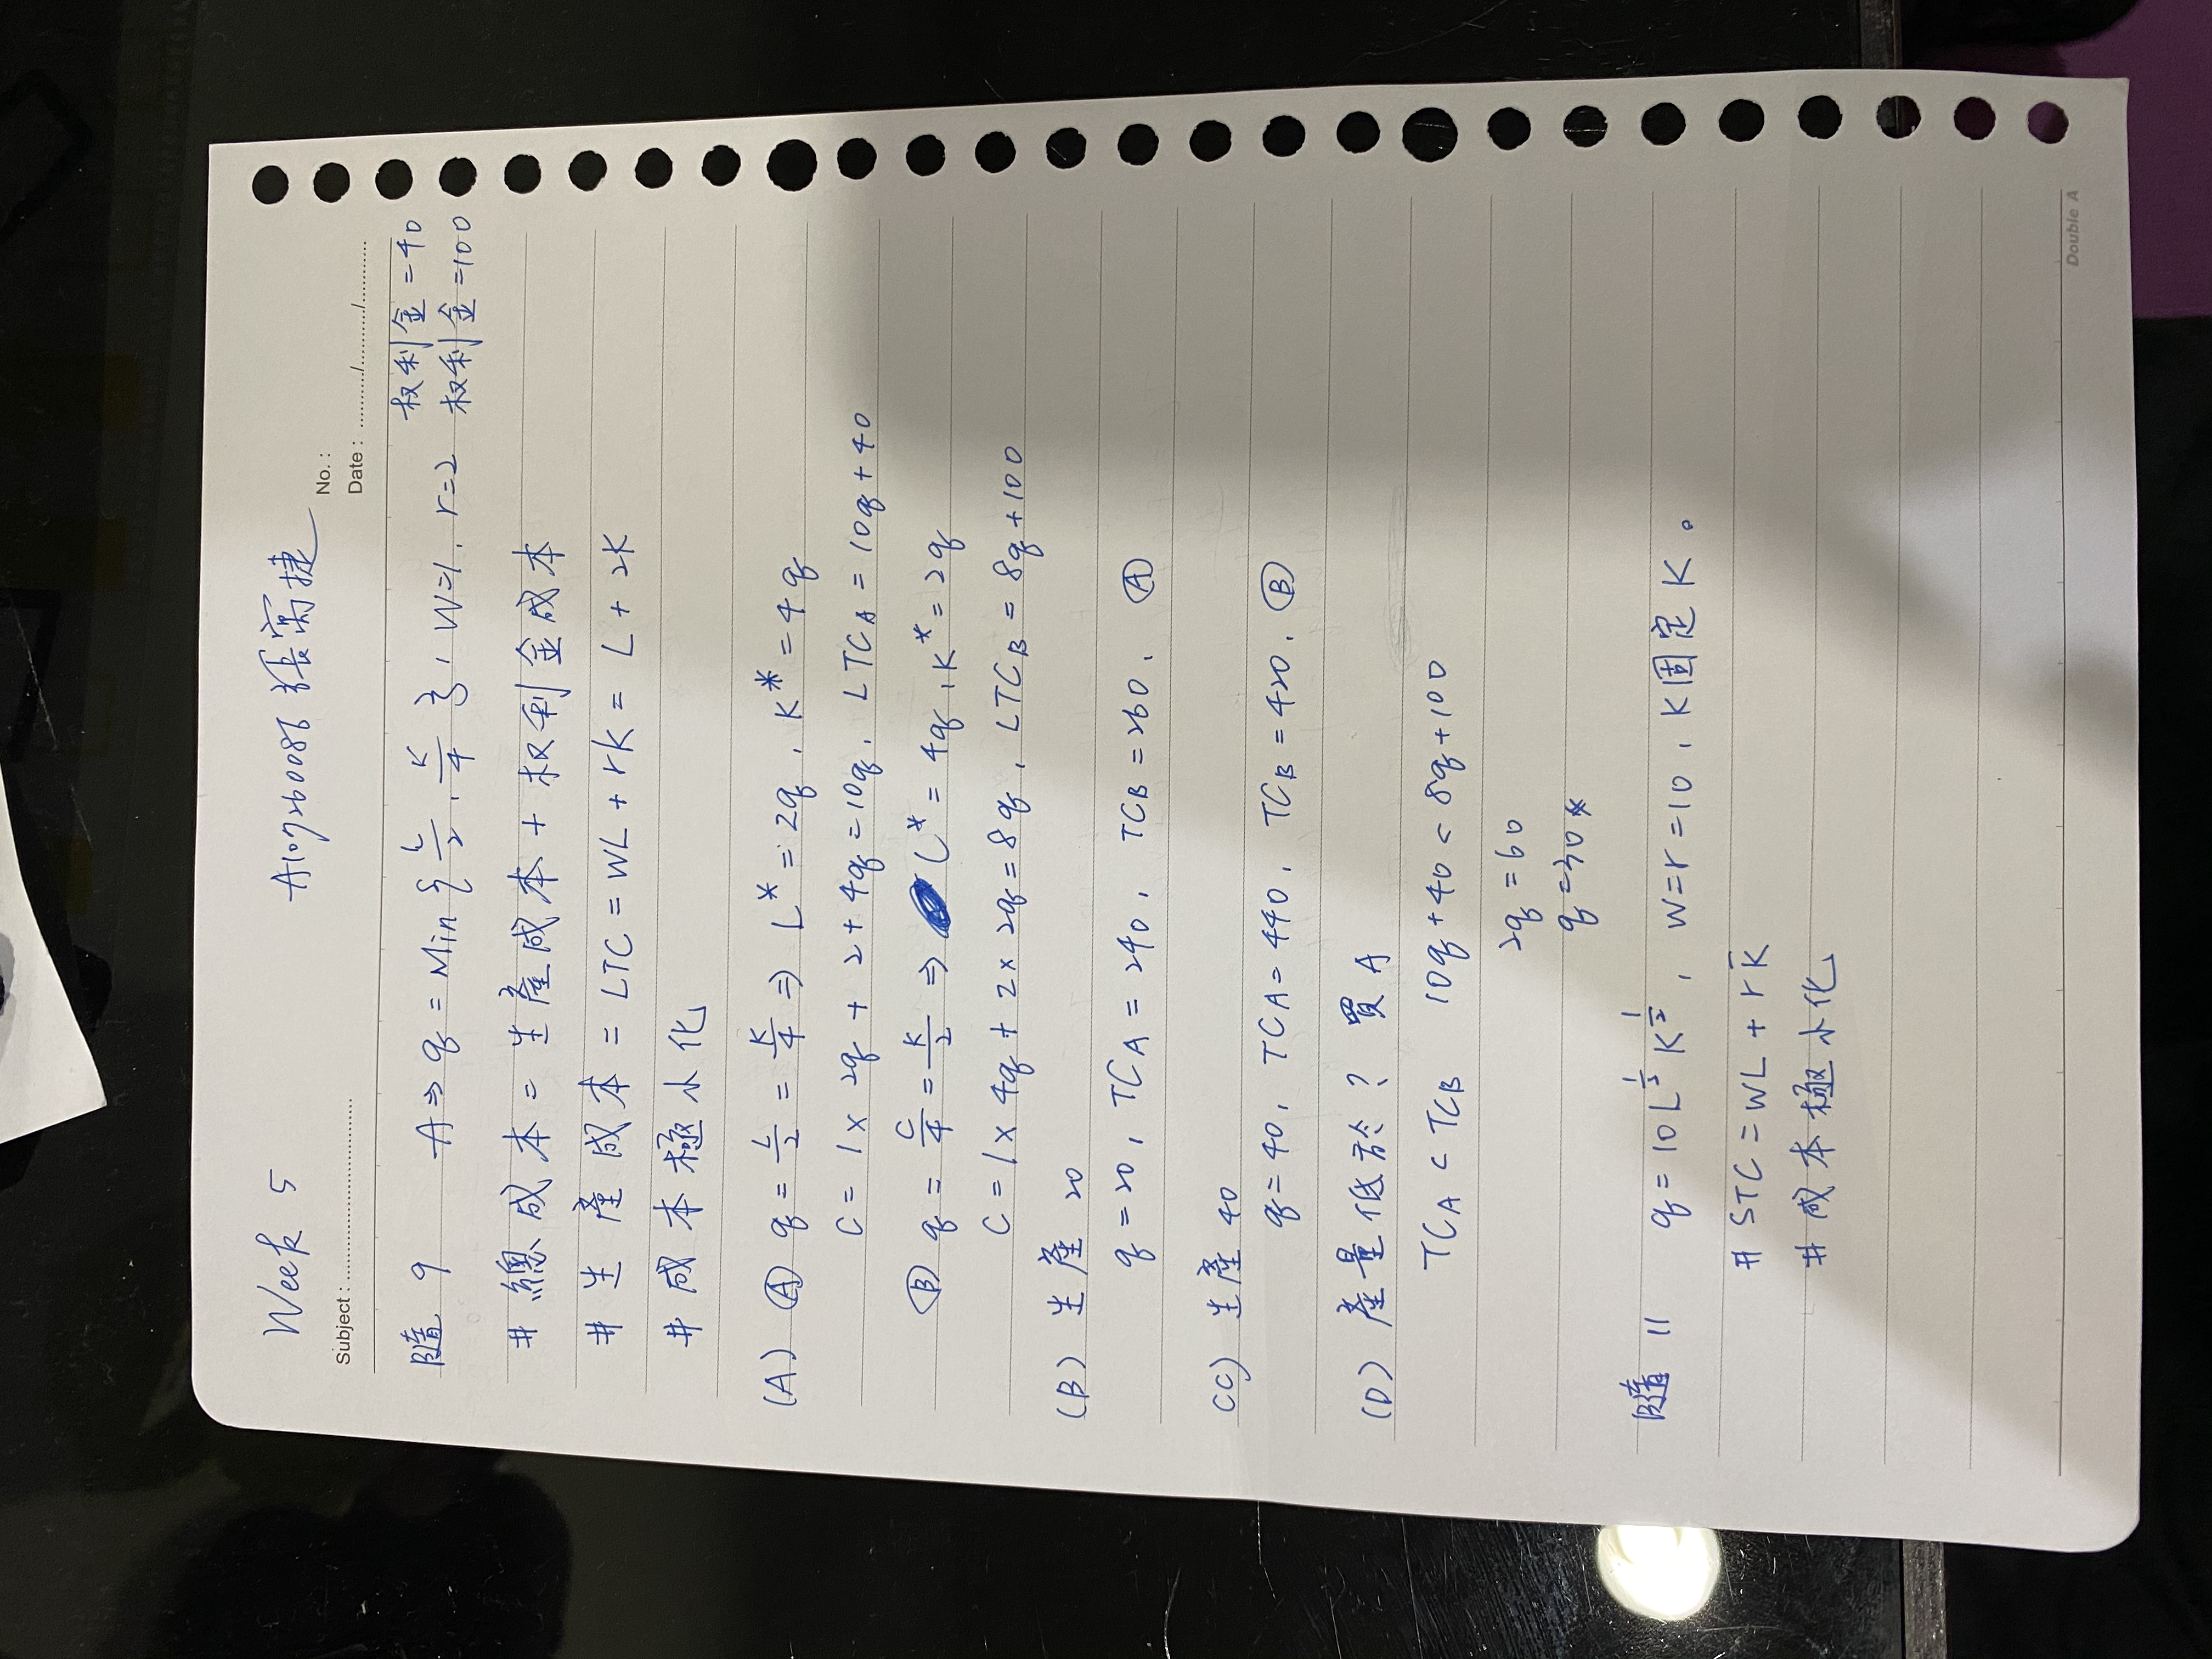 Week 5 A107260086 張寓捷
No. :
Subject : ................................
Date : ........../........../...........
隨 9 A ⇒ q = Min { L/2 , K/4 } , W=1 , r=2 权利金 = 40
权利金 = 100
# 總成本 = 生產成本 + 权利金成本
# 生產成本 = LTC = WL + rK = L + 2K
# 成本極小化
(A) Ⓐ q = L/2 = K/4 ⇒ L* = 2q , K* = 4q
C = 1 × 2q + 2 + 4q = 10q , LTC_A = 10q + 40
Ⓑ q = C/4 = K/2 ⇒ L* = 4q , K* = 2q
C = 1 × 4q + 2 × 2q = 8q , LTC_B = 8q + 100
(B) 生產 20
q = 20 , TC_A = 240 , TC_B = 260 . Ⓐ
(C) 生產 40
q = 40 , TC_A = 440 , TC_B = 420 . Ⓑ
(D) 產量低於 ? 買 A
TC_A < TC_B 10q + 40 < 8q + 100
2q = 60
q = 30 *
隨 11 q = 10 L^½ K^½ , w = r = 10 , K固定 K 。
# STC = WL + r K̄
# 成本極小化
Double A